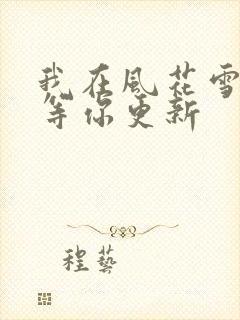 我在風花雪
等你更新
程藝